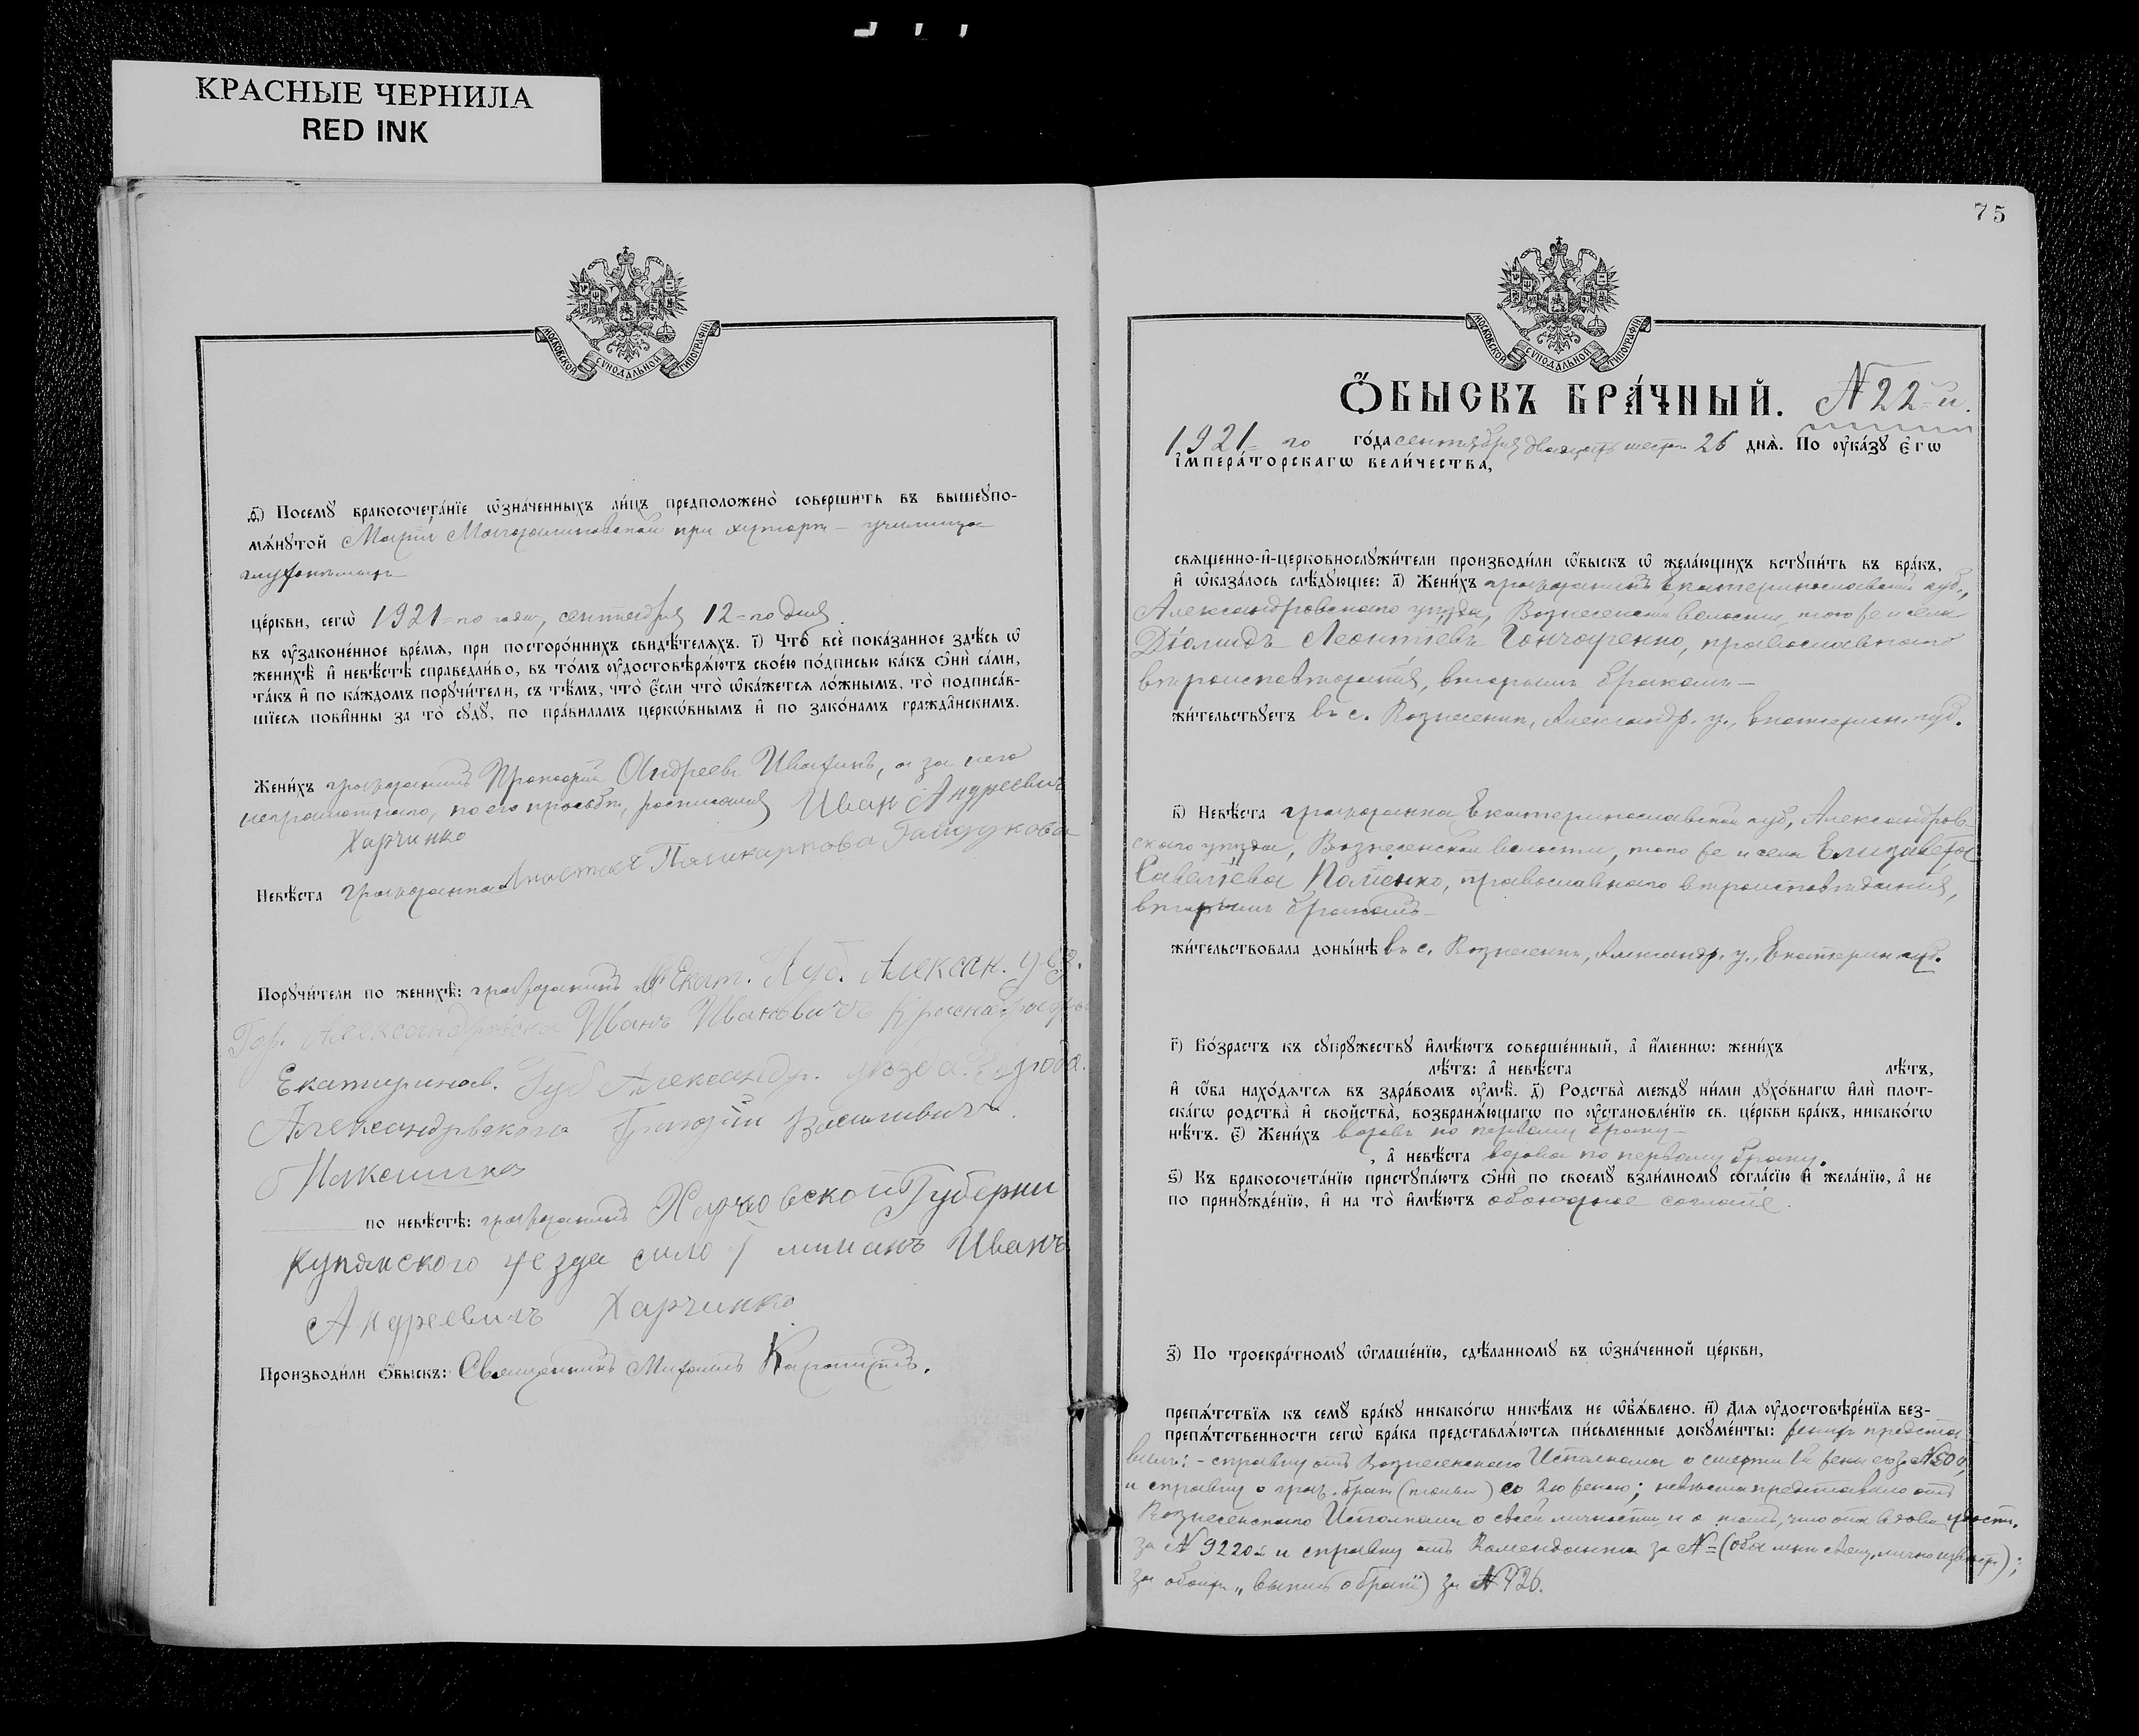 КРАСНЫЕ ЧЕРНИЛА
RED INK
МОСКОВСКОЙ СѴНОДАЛЬНОЙ ТИПОГРАФІИ
Посемꙋ̀ бракосочета́нїе ѡ҆зна́ченныхъ ли́цъ предположено̀ соверши́ть въ вышеꙋпо-
мѧ́нꙋтой Маріи Магдалиновской при хуторѣ - училища
глухонѣмыхъ
це́ркви, сегѡ̀ 1921=го года, сентября 12=го дня.
въ ᲂу҆зако́ненное вре́мѧ, при посторо́ннихъ свидѣ́телѧхъ. і҃) Что̀ всѐ пока́занное здѣ́сь ѡ҆
женихѣ̀ и҆ невѣ́стѣ справедли́во, въ то́мъ ᲂу҆достовѣрѧ́ютъ свое́ю по́дписью ка́къ ѻ҆нѝ са́ми,
та́къ и҆ по ка́ждомъ порꙋчи́тели, съ тѣ́мъ, что̀ є҆́сли что̀ ѡ҆ка́жетсѧ ло́жнымъ, то̀ подписа́в-
шїесѧ пови́нны за то̀ сꙋдꙋ̀, по пра́виламъ церкѡ́внымъ и҆ по зако́намъ гражда́нскимъ.
Жени́хъ гражданинъ Прокофій Андреевъ Ивахинъ, а за него
неграмотнаго, по его просьбѣ, росписался Иван Андреевич
Харчинко
Невѣ́ста гражданка Анастасія Поликарпова Гайдукова
Порꙋчи́тели по женихѣ̀: гражданинъ Екат. Губ. Алексан. уез.
Гор. Александровска Иванъ Ивановичъ
Екатериносл. Губ Александр. уезда. Города.
Александрвского Григорій Василивичъ
по невѣ́стѣ: гражданинъ Харковской Губерни
Купянского уезда село Иванъ
Андреевичъ Харчинко
Производи́ли ѻ҆́быскъ: Священникъ Михаилъ
75
МОСКОВСКОЙ СѴНОДАЛЬНОЙ ТИПОГРАФІИ
Ѻ҆́БЫСКЪ БРА́ЧНЫЙ. N 22=й.
1921=го го́да сентября двадцать шест. 26 днѧ̀. По ᲂу҆ка́зꙋ є҆гѡ̀
і҆мпера́торскагѡ вели́чества,
свѧще́нно-и҆-церковнослꙋжи́тели производи́ли ѡ҆́быскъ ѡ҆ жела́ющихъ встꙋпи́ть въ бра́къ,
и҆ ѡ҆каза́лось слѣ́дꙋющее: а҃) Жени́хъ гражданинъ Екатеринославской губ.,
Александровскаго уѣзда, Вознесенской волости, того же и села
Діомидъ Леонтіевъ Гончаренко, православнаго
вѣроисповѣданія, вторымъ бракомъ
жи́тельствꙋетъ въ с. Вознесенкѣ, Александр. у., Екатерин. губ.
в҃) Невѣ́ста гражданка Екатеринославской губ., Александров-
скаго уѣзда, Вознесенской волости, того же и села Елизавета
Савеліева православнаго вѣроисповѣданія,
вторымъ бракомъ
жи́тельствовала доны́нѣ въ с. Вознесенкѣ, Александр. у., Екатерин. губ.
г҃) Во́зрастъ къ сꙋпрꙋ́жествꙋ и҆мѣ́ютъ соверше́нный, а҆ и҆́меннѡ: жени́хъ
лѣ́тъ: а҆ невѣ́ста лѣ́тъ,
и҆ ѡ҆́ба нахо́дѧтсѧ въ здра́вомъ ᲂу҆мѣ̀. д҃) Родства̀ междꙋ̀ ни́ми дꙋхо́внагѡ и҆лѝ плот-
ска́гѡ родства̀ и҆ сво́йства, возбранѧ́ющагѡ по ᲂу҆становле́нїю св. це́ркви бра́къ, никако́гѡ
нѣ́тъ. є҃) Жени́хъ вдовъ по первому браку
, а҆ невѣ́ста вдова по первому браку.
ѕ҃) Къ бракосочета́нїю пристꙋпа́ютъ ѻ҆нѝ по своемꙋ̀ взаи́мномꙋ согла́сїю и҆ жела́нїю, а҆ не
по принꙋжде́нїю, и҆ на то̀ и҆мѣ́ютъ обоюдное согласіе.
з҃) По троекра́тномꙋ ѡ҆глаше́нїю, сдѣ́ланномꙋ въ ѡ҆зна́ченной це́ркви,
препѧ́тствїѧ къ семꙋ̀ бра́кꙋ никако́гѡ никѣ́мъ не ѡ҆б̾ѧ́влено. и҃) Длѧ ᲂу҆достовѣре́нїѧ без-
препѧ́тственности сегѡ̀ бра́ка представлѧ́ютсѧ пи́сьменные докꙋме́нты: женихъ предста-
вилъ: - справку отъ Вознесенскаго Исполкома о смерти 1й жены за N
и справку о граж. брак со 2ю женою; невѣста представила отъ
Вознесенскаго Исполкома о своей личности и о томъ, что она вдова
за N 9220 и справку отъ Коменданта за N=
за обоихъ „выпись о бракѣ") за N 426.